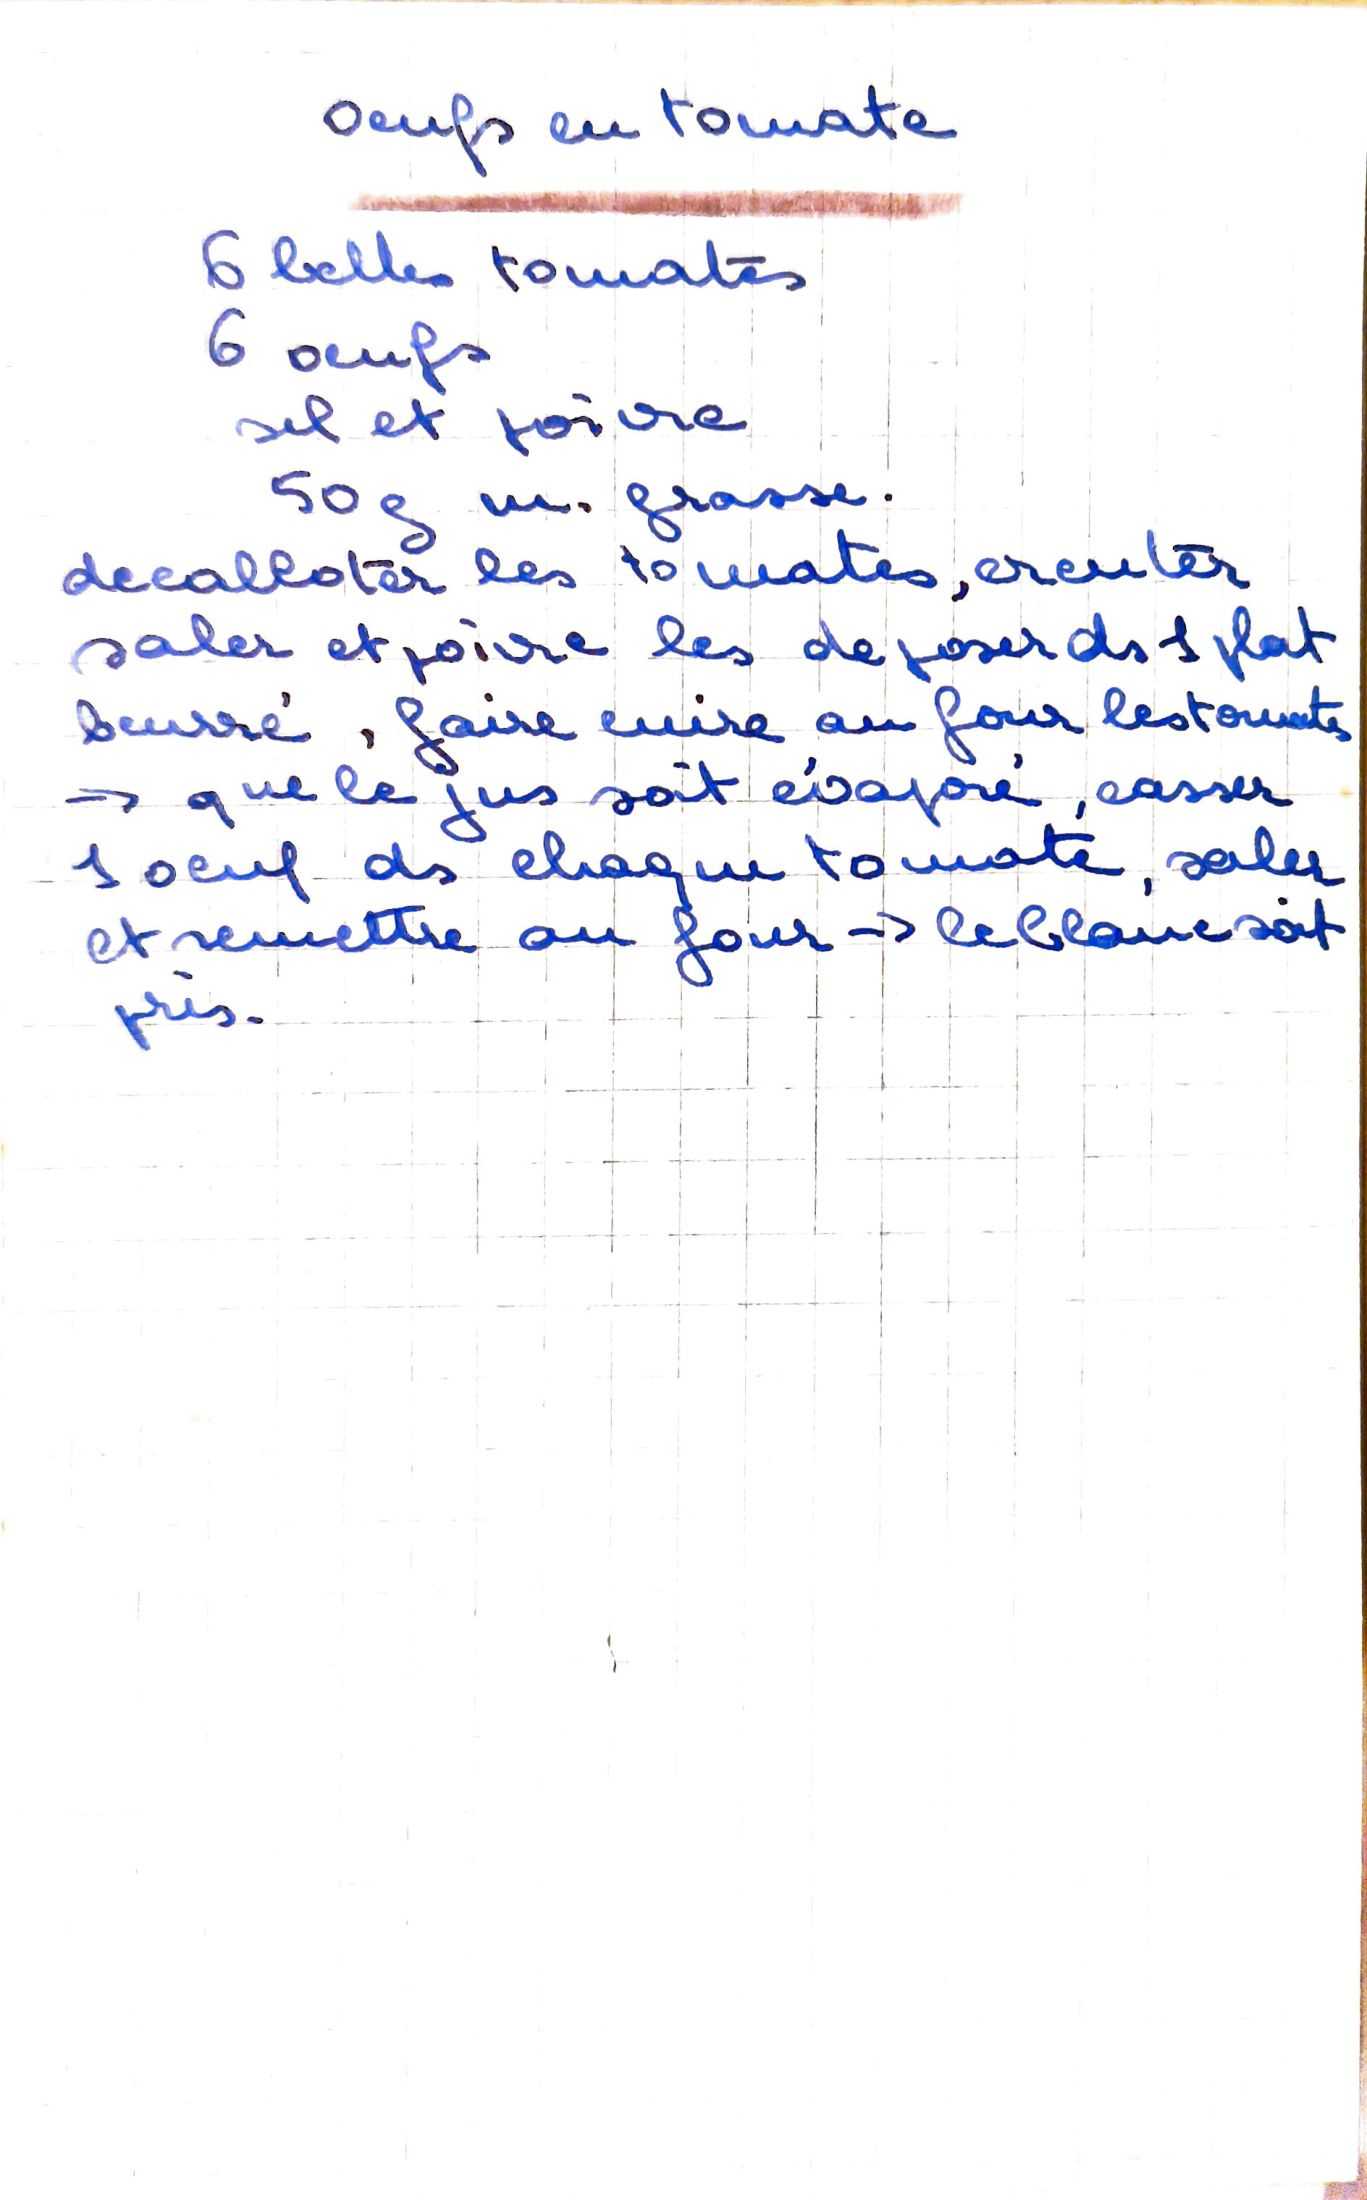 oeufs en tomate
6 belles tomates
6 oeufs
sel et poivre
50g m. grasse.
decalloter les tomates, creuter
saler et poivre les deposer ds 1 plat
beurré, faire cuire au four les tomates
→ que le jus soit évaporé, casser
1 oeuf ds chaque tomate, saler
et remettre au four → le blanc soit
pris.